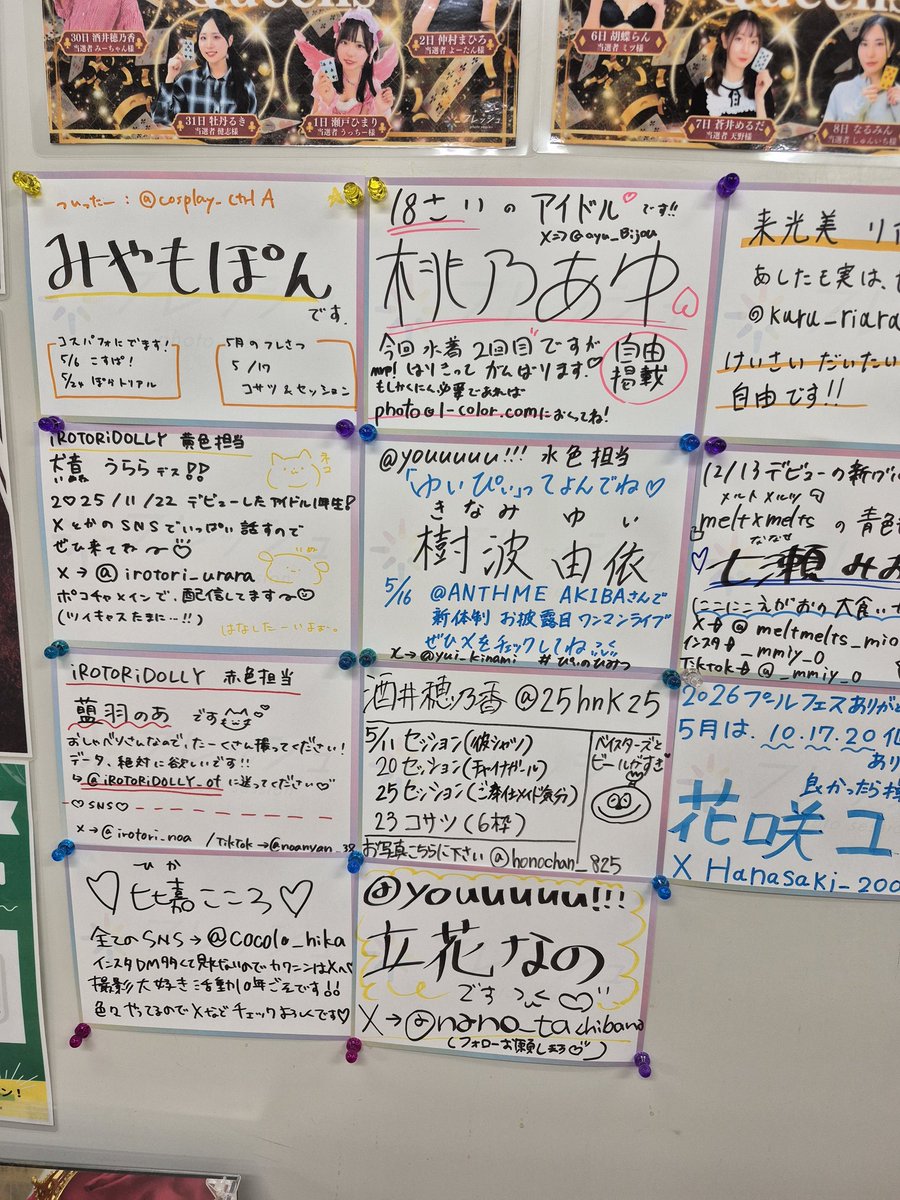 Queens
30日 酒井穂乃香
当選者 みーちゃん様
31日 牡丹るき
当選者 健志様
1日 瀬戸ひまり
当選者 うっちー様
2日 仲村まひろ
当選者 よーたん様
フレッシュ
Queens
6日 胡蝶らん
当選者 ミツ様
7日 蒼井めるだ
当選者 天野様
8日 なるみん
当選者 しゅんいち様
ついったー:@cosplay_ctrlA
みやもぽん
です.
コスパフォにでます!
5/6 こすぱ!
5/24 ぽけトリアル
5月のフレさつ
5/17
コサツ&セッション
18さいのアイドル♡です!!
X⇒@ayu_Bijou
桃乃あゆ
今回水着2回目ですが
はりきってがんばります.♡
もしかくにん必要であれば
photo@l-color.comにおくってね!
自由
掲載
来光美 リ
あしたも実は、
@kuru_riara
けいさいだいたい
自由です!!
iROTORiDOLLY 黄色担当
うららデス!!
ネコ
2♡25/11/22 デビューしたアイドル1年生!
XとかのSNSでいっぱい話すので
ぜひ来てね〜♡
X→@irotori_urara
ポコチャメインで、配信してます〜
(ツイキャスたまに…!!)
いぬ
はなしたーいままー。
@youuuuu!!! 水色担当
「ゆいぴぃ」ってよんでね♡
きなみ ゆい
樹波 由依
5/16 @ANTHME AKIBAさんで
新体制 お披露目ワンマンライブ
ぜひXをチェックしてね
X→@yui_kinami #ぴぃのひみつ
12/13デビューの新グル
メルト メルツ
melt×meltsの青色
ななせ
七瀬みお
(ここにこえがおの大食い
X @meltmelts_mio
インスタ _mmiy_0
Tiktok @_mmiy_0
iROTORiDOLLY 赤色担当
藍羽のあ です
おしゃべりさんなので、たーくさん撮ってください!
データ、絶対に欲しいです!!
↳@iROTORiDOLLY_ofに送ってください♡
♡SNS♡
X→@irotori_noa /Tiktok→@noanyan_38
酒井穂乃香@25hnk25
5/11 セッション(彼シャツ)
20 セッション(チャイナガール)
25 セッション(ご奉仕メイド気分)
23 コサツ(6枠)
ベイスターズと
ビールがすき
お写真こちらに下さい@honochan_825
2026プールフェスありがと
5月は、10.17.20
あり
良かったら
花咲ユ
X Hanasaki_200
ひか
♡妃嘉こころ♡
全てのSNS→@cocolo_hika
インスタDM多くて見れないのでカクニンはXへ
撮影大好き活動10年ごえです!!
色々やってるのでXなどチェックよろしくです♡
@youuuuu!!!
立花なの
です
X→@nano_tachibana
(フォローお願いしまる♡)